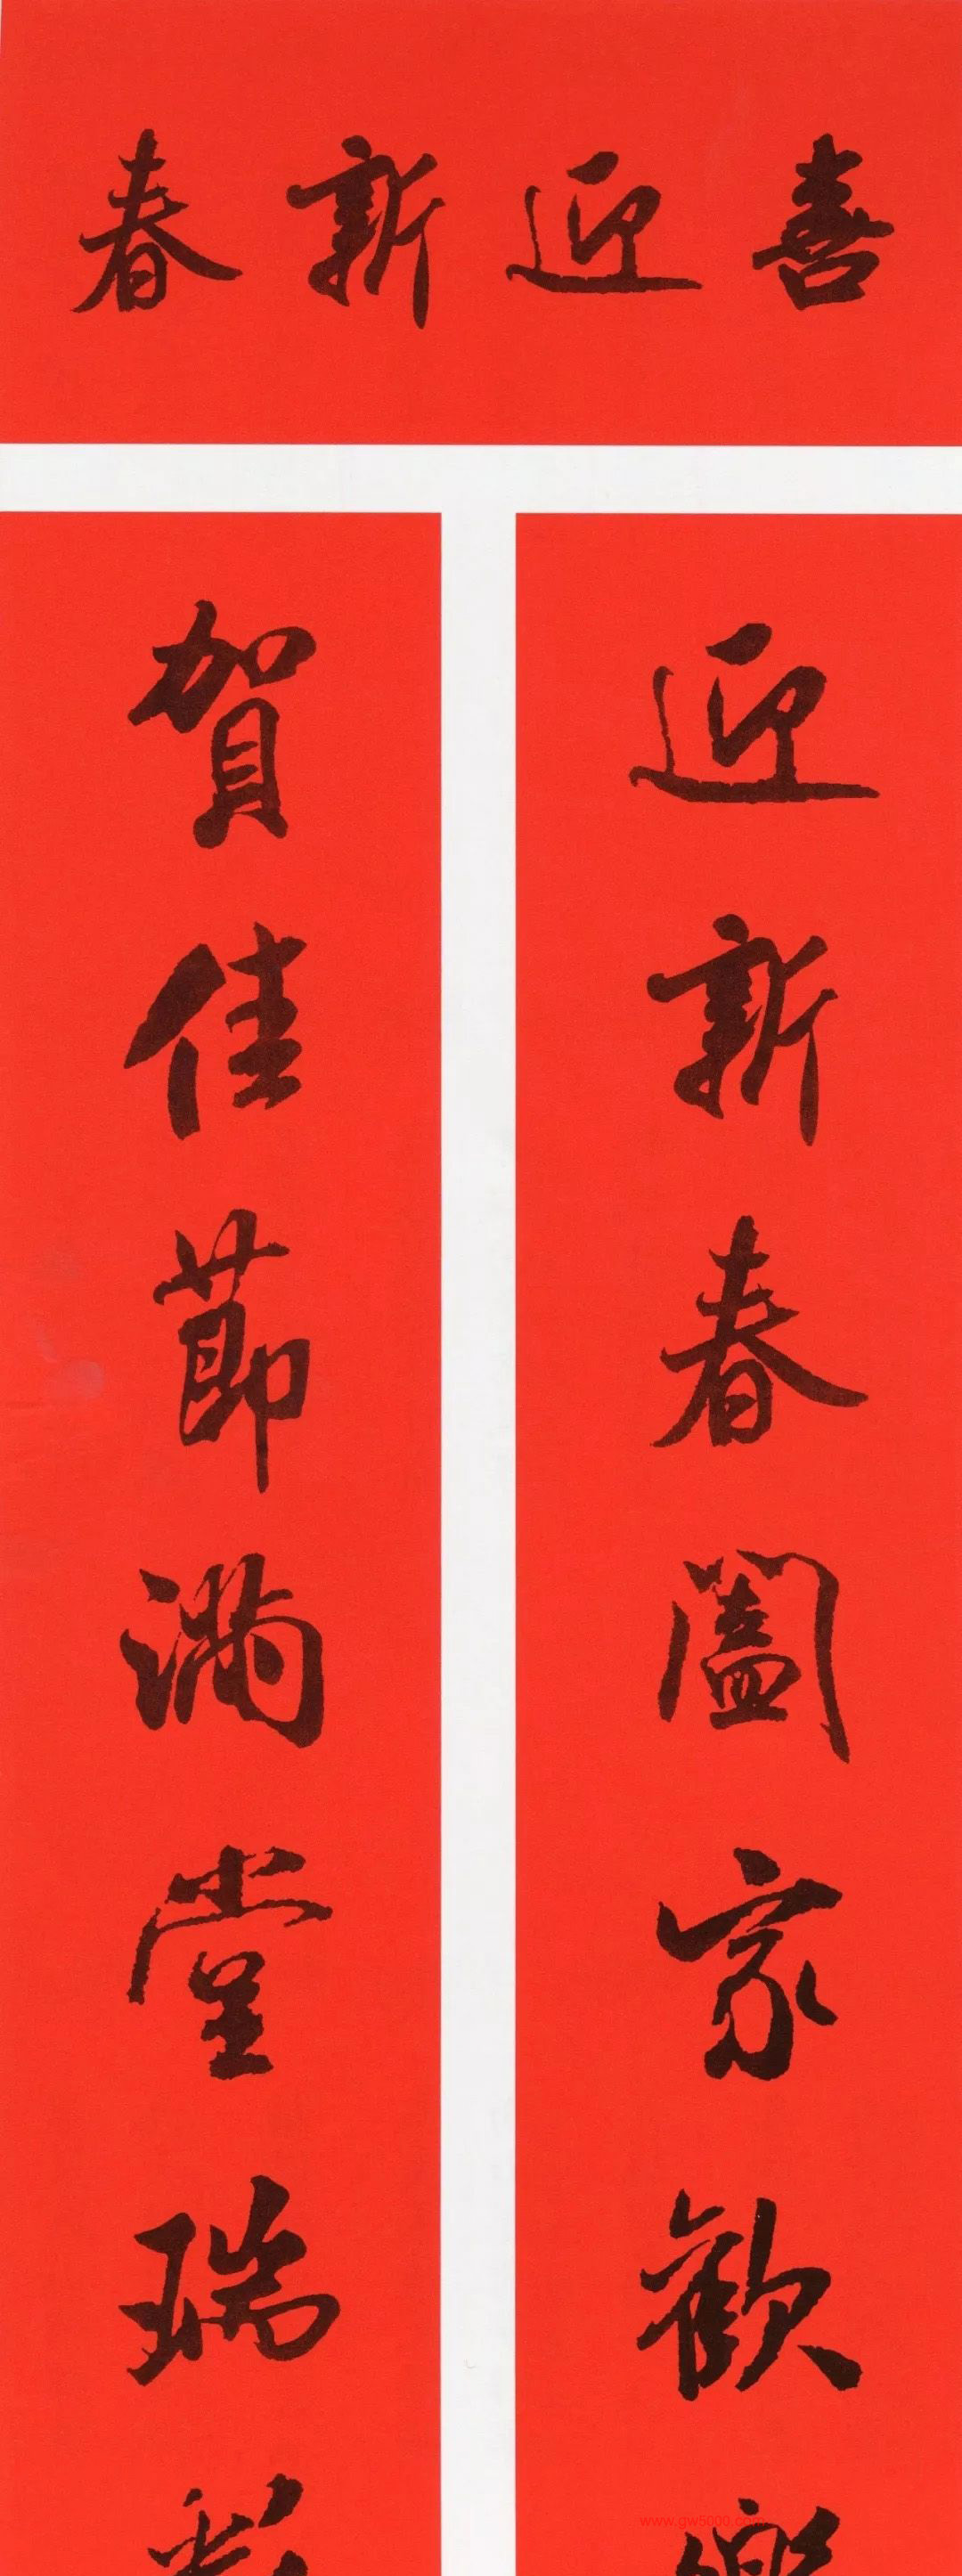 喜迎新春
迎新春闔家歡樂
賀佳節滿堂瑞
www.gw5000.com